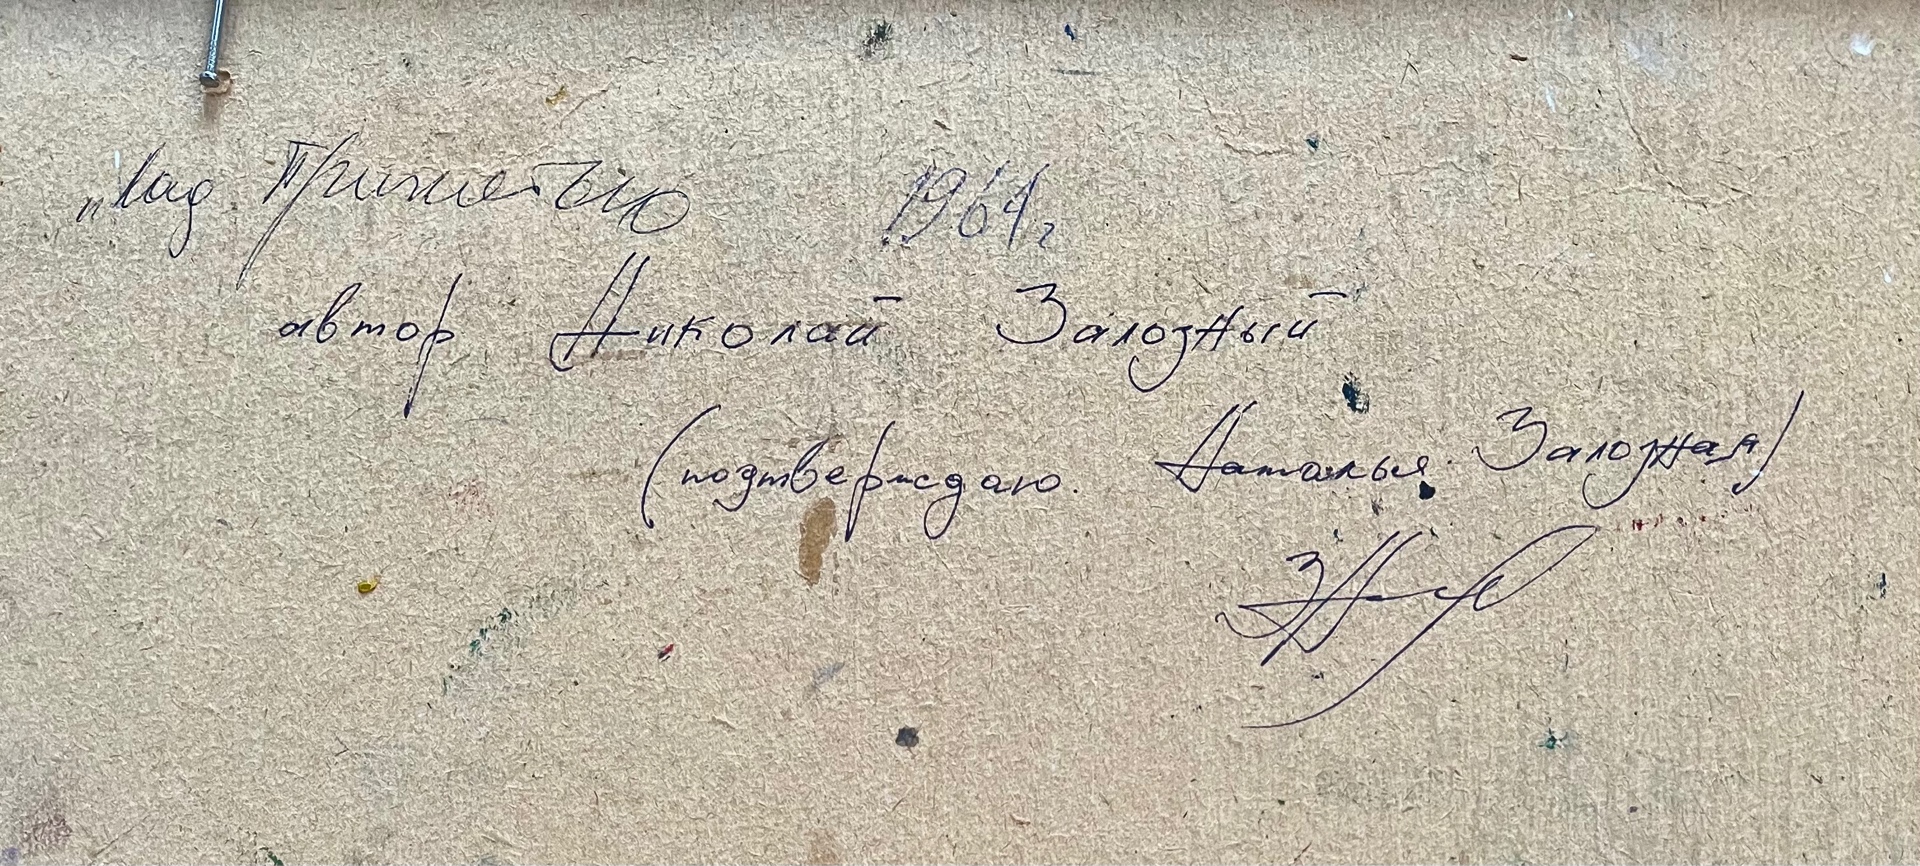 „Над Припятью 1964г
автор Николай Залозный
(подтверждаю Наталья Залозная)